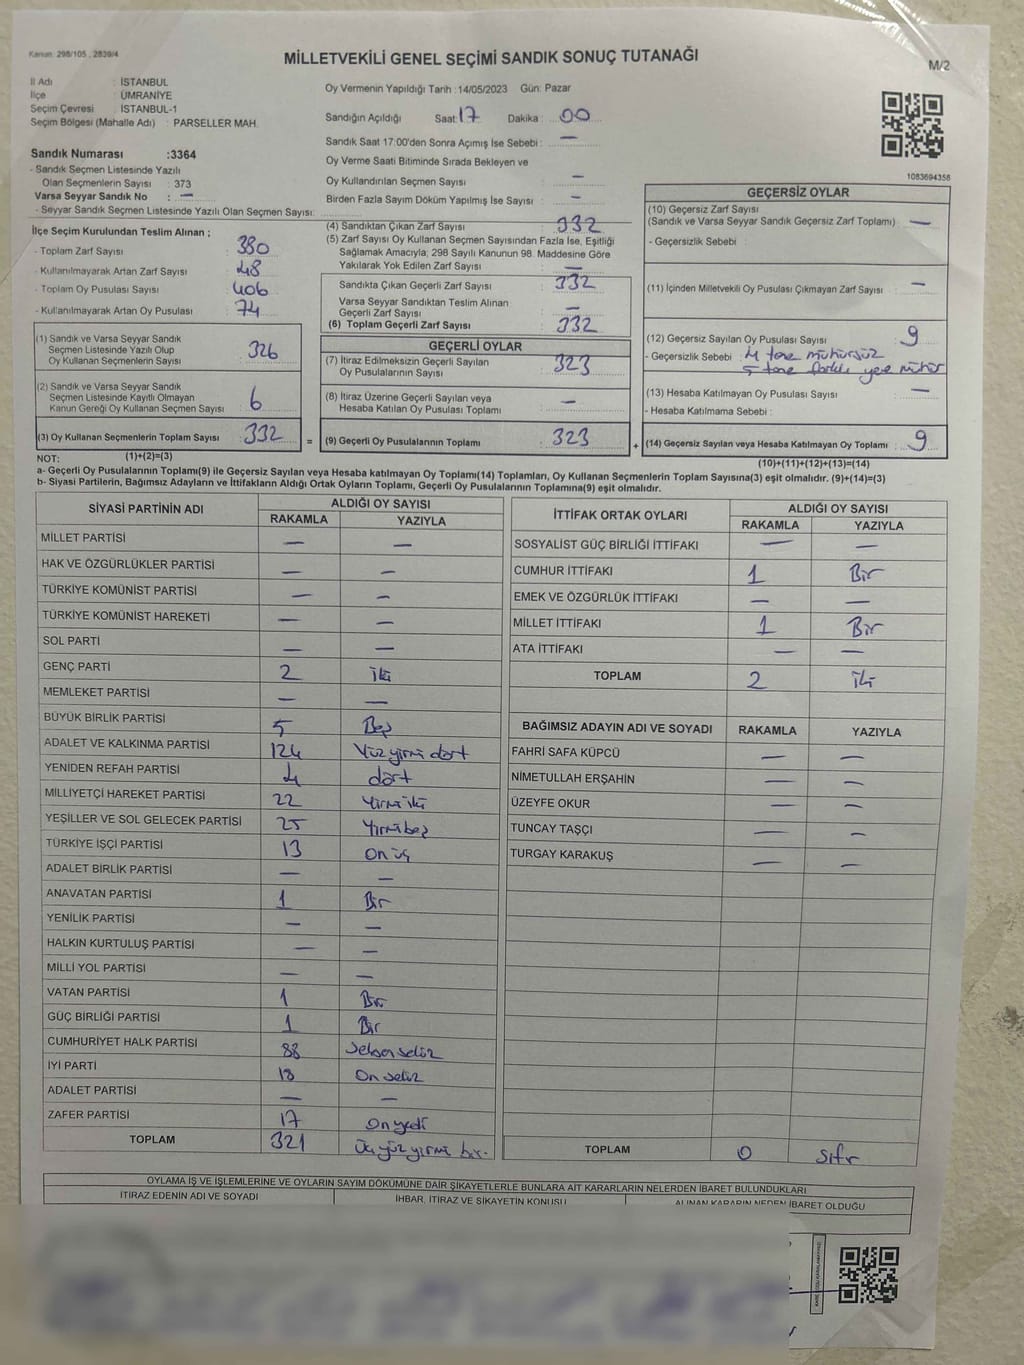 Kanun: 298/105 , 2839/4
MİLLETVEKİLİ GENEL SEÇİMİ SANDIK SONUÇ TUTANAĞI
M/2
İl Adı : İSTANBUL
İlçe : ÜMRANİYE
Seçim Çevresi : İSTANBUL-1
Seçim Bölgesi (Mahalle Adı) : PARSELLER MAH.
Oy Vermenin Yapıldığı Tarih : 14/05/2023 Gün: Pazar
Sandığın Açıldığı Saat: 17 Dakika : 00
Sandık Saat 17:00'den Sonra Açımış İse Sebebi : —
Oy Verme Saati Bitiminde Sırada Bekleyen ve
Oy Kullandırılan Seçmen Sayısı : —
Birden Fazla Sayım Döküm Yapılmış İse Sayısı : —
1083694358
Sandık Numarası :3364
- Sandık Seçmen Listesinde Yazılı
Olan Seçmenlerin Sayısı : 373
Varsa Seyyar Sandık No : —
- Seyyar Sandık Seçmen Listesinde Yazılı Olan Seçmen Sayısı:
İlçe Seçim Kurulundan Teslim Alınan ;
- Toplam Zarf Sayısı : 380
- Kullanılmayarak Artan Zarf Sayısı : 48
- Toplam Oy Pusulası Sayısı : 406
- Kullanılmayarak Artan Oy Pusulası : 74
(1) Sandık ve Varsa Seyyar Sandık
Seçmen Listesinde Yazılı Olup
Oy Kullanan Seçmenlerin Sayısı : 326
(2) Sandık ve Varsa Seyyar Sandık
Seçmen Listesinde Kayıtlı Olmayan
Kanun Gereği Oy Kullanan Seçmen Sayısı : 6
(3) Oy Kullanan Seçmenlerin Toplam Sayısı : 332
(4) Sandıktan Çıkan Zarf Sayısı : 332
(5) Zarf Sayısı Oy Kullanan Seçmen Sayısından Fazla İse, Eşitliği
Sağlamak Amacıyla; 298 Sayılı Kanunun 98. Maddesine Göre
Yakılarak Yok Edilen Zarf Sayısı : —
Sandıkta Çıkan Geçerli Zarf Sayısı : 332
Varsa Seyyar Sandıktan Teslim Alınan
Geçerli Zarf Sayısı : —
(6) Toplam Geçerli Zarf Sayısı : 332
GEÇERLİ OYLAR
(7) İtiraz Edilmeksizin Geçerli Sayılan
Oy Pusulalarının Sayısı : 323
(8) İtiraz Üzerine Geçerli Sayılan veya
Hesaba Katılan Oy Pusulası Toplamı : —
= (9) Geçerli Oy Pusulalarının Toplamı : 323
GEÇERSİZ OYLAR
(10) Geçersiz Zarf Sayısı
(Sandık ve Varsa Seyyar Sandık Geçersiz Zarf Toplamı) : —
- Geçersizlik Sebebi :
(11) İçinden Milletvekili Oy Pusulası Çıkmayan Zarf Sayısı : —
(12) Geçersiz Sayılan Oy Pusulası Sayısı : 9
- Geçersizlik Sebebi : 4 tane mühürsüz
5 tane farklı yere mühür
(13) Hesaba Katılmayan Oy Pusulası Sayısı : —
- Hesaba Katılmama Sebebi :
+ (14) Geçersiz Sayılan veya Hesaba Katılmayan Oy Toplamı : 9
NOT: (1)+(2)=(3)
(10)+(11)+(12)+(13)=(14)
a- Geçerli Oy Pusulalarının Toplamı(9) ile Geçersiz Sayılan veya Hesaba katılmayan Oy Toplamı(14) Toplamları, Oy Kullanan Seçmenlerin Toplam Sayısına(3) eşit olmalıdır. (9)+(14)=(3)
b- Siyasi Partilerin, Bağımsız Adayların ve İttifakların Aldığı Ortak Oyların Toplamı, Geçerli Oy Pusulalarının Toplamına(9) eşit olmalıdır.
SİYASİ PARTİNİN ADI ALDIĞI OY SAYISI
RAKAMLA YAZIYLA
MİLLET PARTİSİ — —
HAK VE ÖZGÜRLÜKLER PARTİSİ — —
TÜRKİYE KOMÜNİST PARTİSİ — —
TÜRKİYE KOMÜNİST HAREKETİ — —
SOL PARTİ — —
GENÇ PARTİ 2 iki
MEMLEKET PARTİSİ — —
BÜYÜK BİRLİK PARTİSİ 5 Beş
ADALET VE KALKINMA PARTİSİ 124 Yüz yirmi dört
YENİDEN REFAH PARTİSİ 4 dört
MİLLİYETÇİ HAREKET PARTİSİ 22 Yirmi iki
YEŞİLLER VE SOL GELECEK PARTİSİ 25 Yirmi beş
TÜRKİYE İŞÇİ PARTİSİ 13 on üç
ADALET BİRLİK PARTİSİ — —
ANAVATAN PARTİSİ 1 Bir
YENİLİK PARTİSİ — —
HALKIN KURTULUŞ PARTİSİ — —
MİLLİ YOL PARTİSİ — —
VATAN PARTİSİ 1 Bir
GÜÇ BİRLİĞİ PARTİSİ 1 Bir
CUMHURİYET HALK PARTİSİ 88 seksen sekiz
İYİ PARTİ 18 On sekiz
ADALET PARTİSİ — —
ZAFER PARTİSİ 17 On yedi
TOPLAM 321 Üç yüz yirmi bir.
İTTİFAK ORTAK OYLARI ALDIĞI OY SAYISI
RAKAMLA YAZIYLA
SOSYALİST GÜÇ BİRLİĞİ İTTİFAKI — —
CUMHUR İTTİFAKI 1 Bir
EMEK VE ÖZGÜRLÜK İTTİFAKI — —
MİLLET İTTİFAKI 1 Bir
ATA İTTİFAKI — —
TOPLAM 2 iki
BAĞIMSIZ ADAYIN ADI VE SOYADI RAKAMLA YAZIYLA
FAHRİ SAFA KÜPCÜ — —
NİMETULLAH ERŞAHİN — —
ÜZEYFE OKUR — —
TUNCAY TAŞÇI — —
TURGAY KARAKUŞ — —
TOPLAM 0 sıfır
OYLAMA İŞ VE İŞLEMLERİNE VE OYLARIN SAYIM DÖKÜMÜNE DAİR ŞİKAYETLERLE BUNLARA AİT KARARLARIN NELERDEN İBARET BULUNDUKLARI
İTİRAZ EDENİN ADI VE SOYADI İHBAR, İTİRAZ VE ŞİKAYETİN KONUSU ALINAN KARARIN NEDEN İBARET OLDUĞU